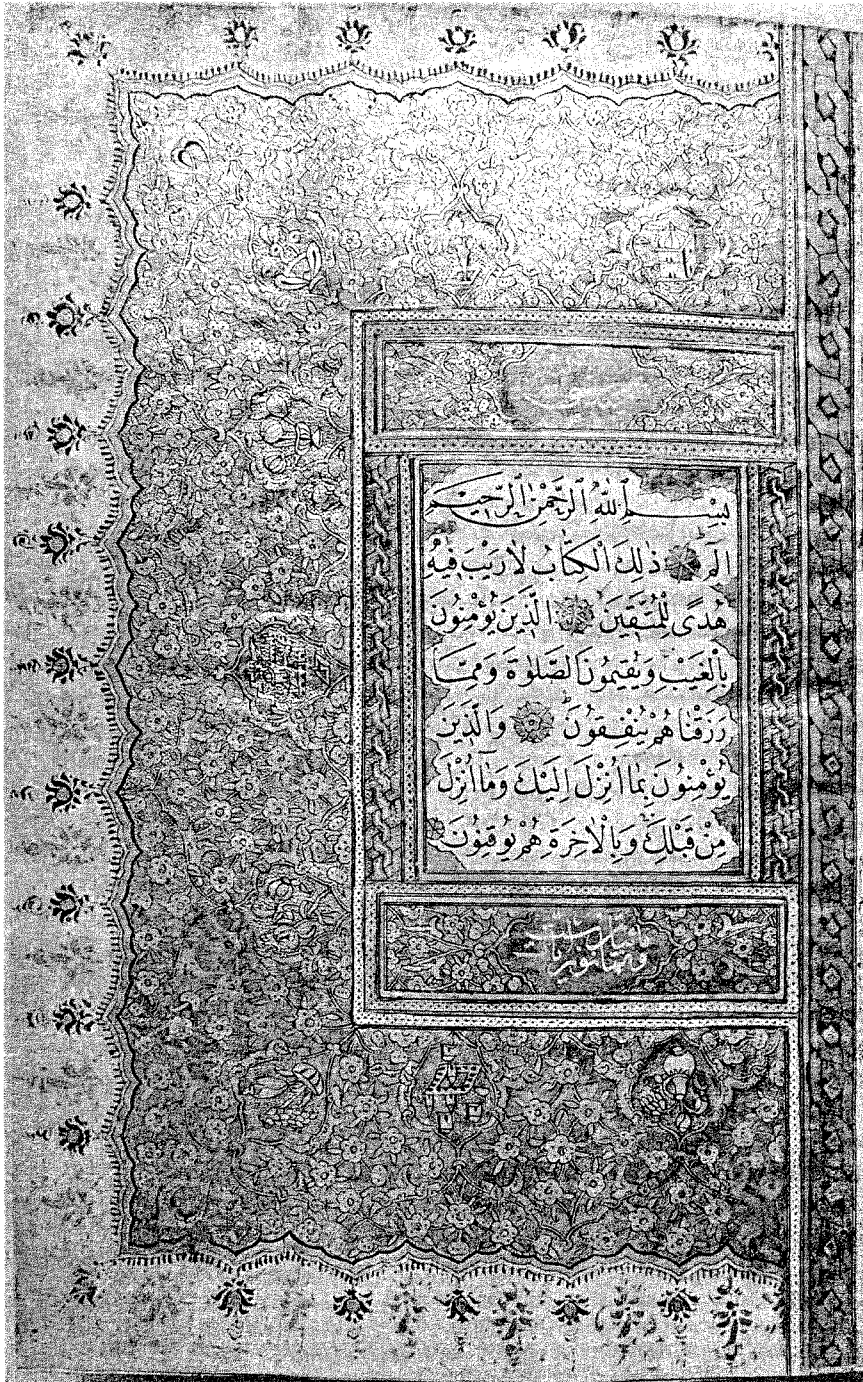 بِسْمِ ٱللّٰهِ ٱلرَّحْمٰنِ ٱلرَّحِيمِ
الٓمٓ ذٰلِكَ الْكِتَابُ لَا رَيْبَ فِيهِ
هُدًى لِلْمُتَّقِينَ الَّذِينَ يُؤْمِنُونَ
بِالْغَيْبِ وَيُقِيمُونَ الصَّلٰوةَ وَمِمَّا
رَزَقْنَاهُمْ يُنْفِقُونَ وَالَّذِينَ
يُؤْمِنُونَ بِمَٓا اُنْزِلَ اِلَيْكَ وَمَٓا اُنْزِلَ
مِنْ قَبْلِكَ وَبِالْاٰخِرَةِ هُمْ يُوقِنُونَ